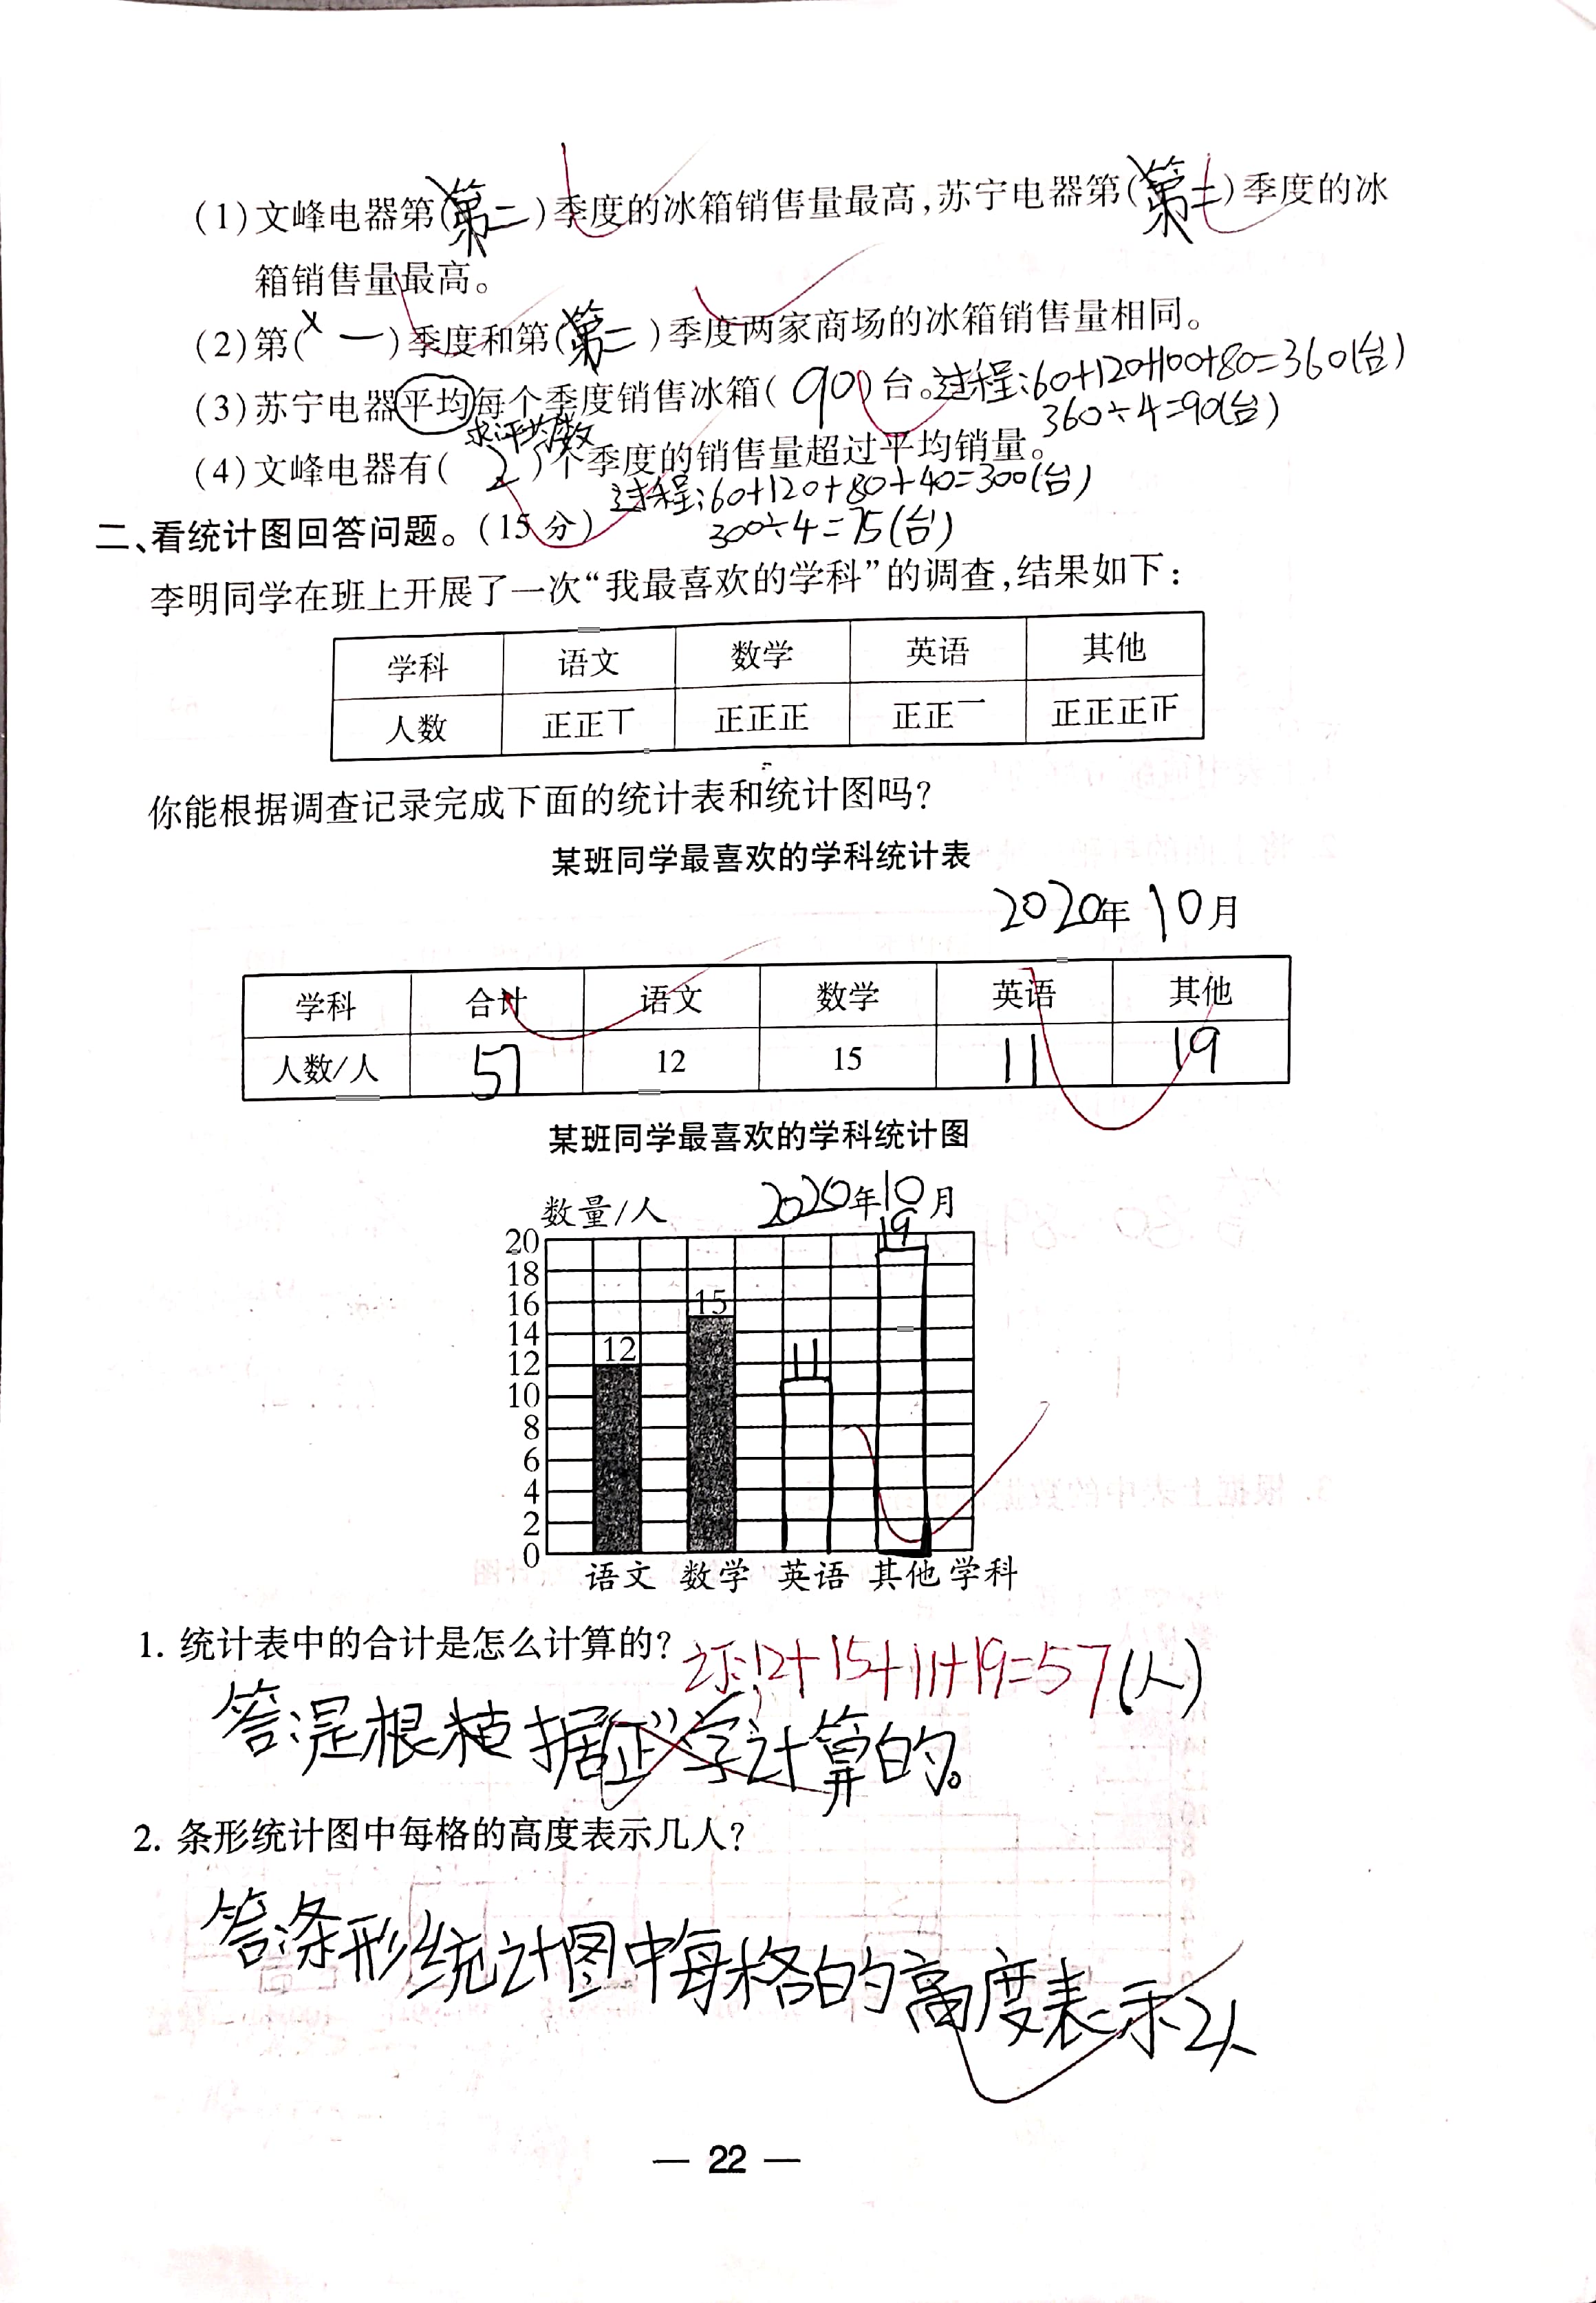 (1)文峰电器第(第二)季度的冰箱销售量最高,苏宁电器第(第二)季度的冰
箱销售量最高。
(2)第(一)季度和第(第二)季度两家商场的冰箱销售量相同。
(3)苏宁电器平均每个季度销售冰箱(90)台。过程:60+120+100+80=360(台)
360÷4=90(台)
求平均数
(4)文峰电器有(2)个季度的销售量超过平均销量。
过程:60+120+80+40=300(台)
300÷4=75(台)
二、看统计图回答问题。(15分)
李明同学在班上开展了一次“我最喜欢的学科”的调查,结果如下:
学科 语文 数学 英语 其他
人数 正正丅 正正正 正正一 正正正
你能根据调查记录完成下面的统计表和统计图吗?
某班同学最喜欢的学科统计表
2020年10月
学科 合计 语文 数学 英语 其他
人数/人 57 12 15 11 19
某班同学最喜欢的学科统计图
数量/人 2020年10月
20
18
16
14
12
10
8
6
4
2
0
12
15
11
19
语文 数学 英语 其他 学科
1. 统计表中的合计是怎么计算的?
正:12+15+11+19=57(人)
答:是根据“正”字计算的。
2. 条形统计图中每格的高度表示几人?
答:条形统计图中每格的高度表示2人
— 22 —